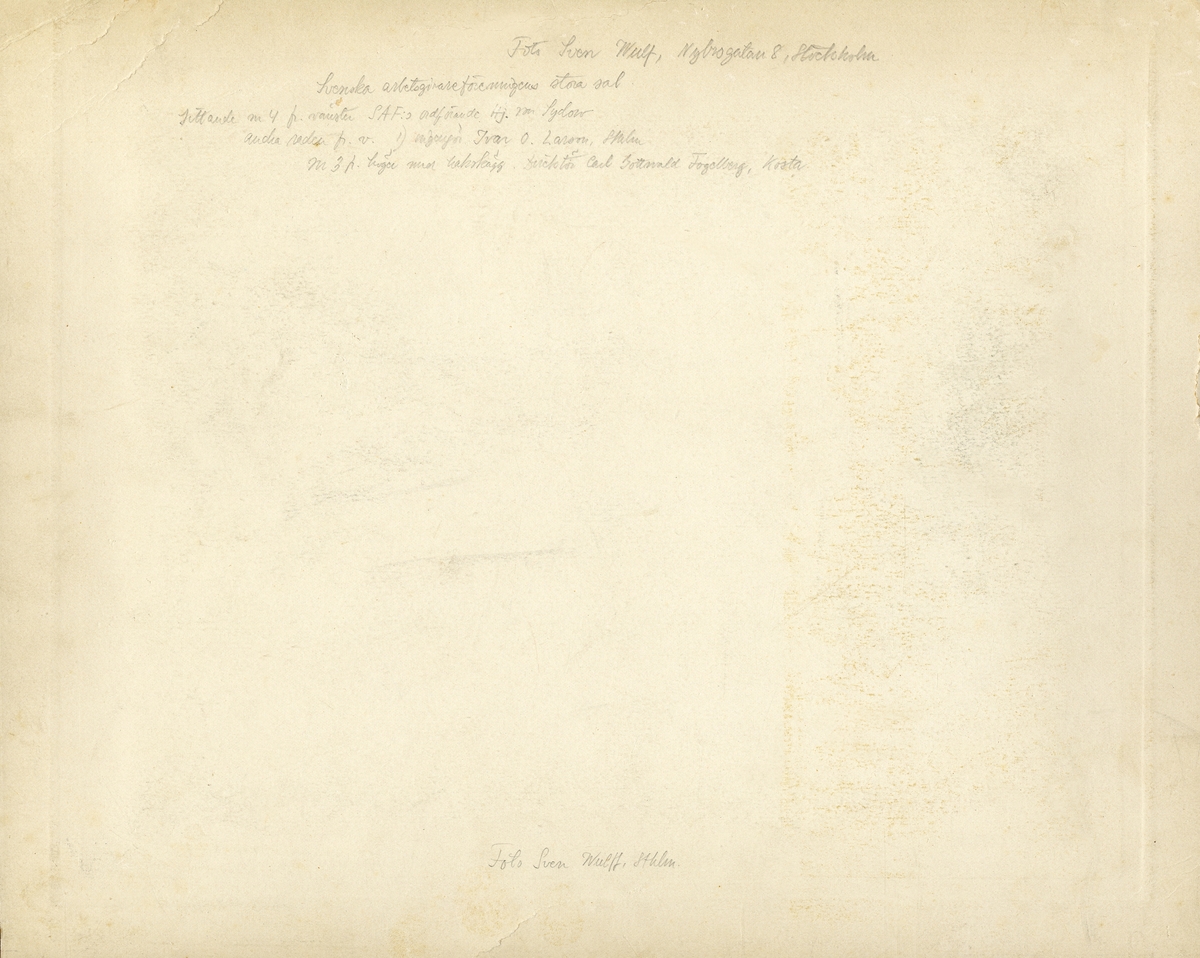 Foto Sven Wulf, Nybrogatan 8, Stockholm
Svenska arbetsgivareföreningens stora sal.
Sittande nr 4 fr. vänster SAF:s ordförande Hj. von Sydow
Andra raden fr. v. 1) ingenjör Ivar O. Larson, Sthlm.
Nr 3 fr. höger med hakskägg. Direktör Carl Gottwald Fogelberg, Kosta.
Foto Sven Wulff, Sthlm.